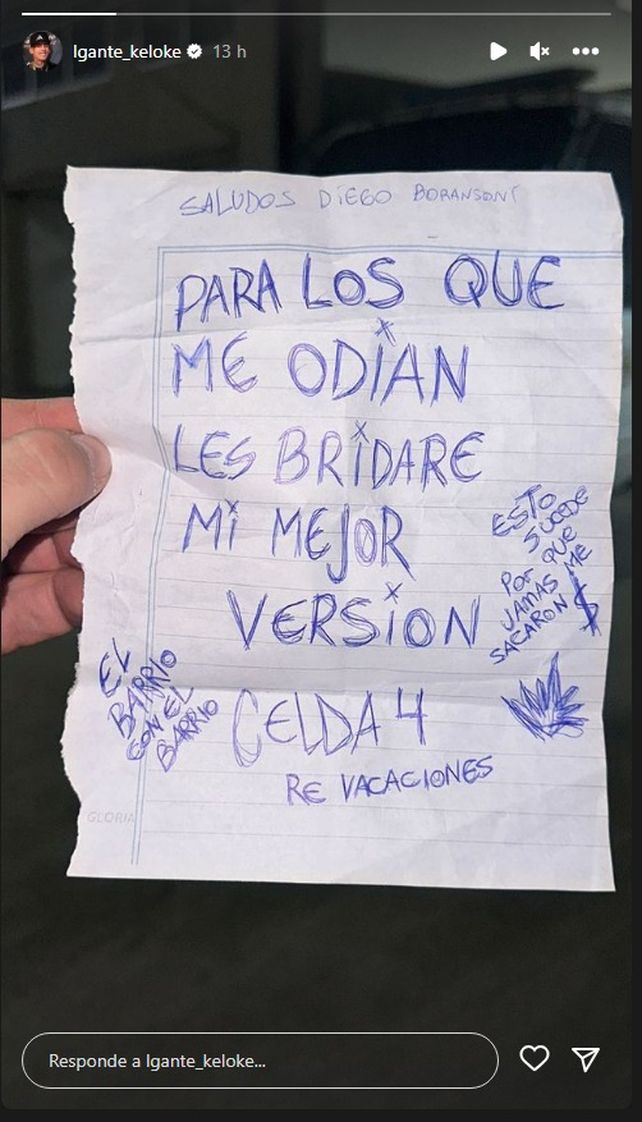 lgante_keloke 13 h
SALUDOS DiEGO BORANSONi
PARA LOS QUE
ME ODiAN
LES BRiDARE
Mi MEJOR
VERSiON
ESTO
SUCEDE
POR QUE
JAMAS ME
SACARON $
EL
BARRIO
CON EL
BARRIO
CELDA 4
RE VACACIONES
GLORIA
Responde a lgante_keloke...